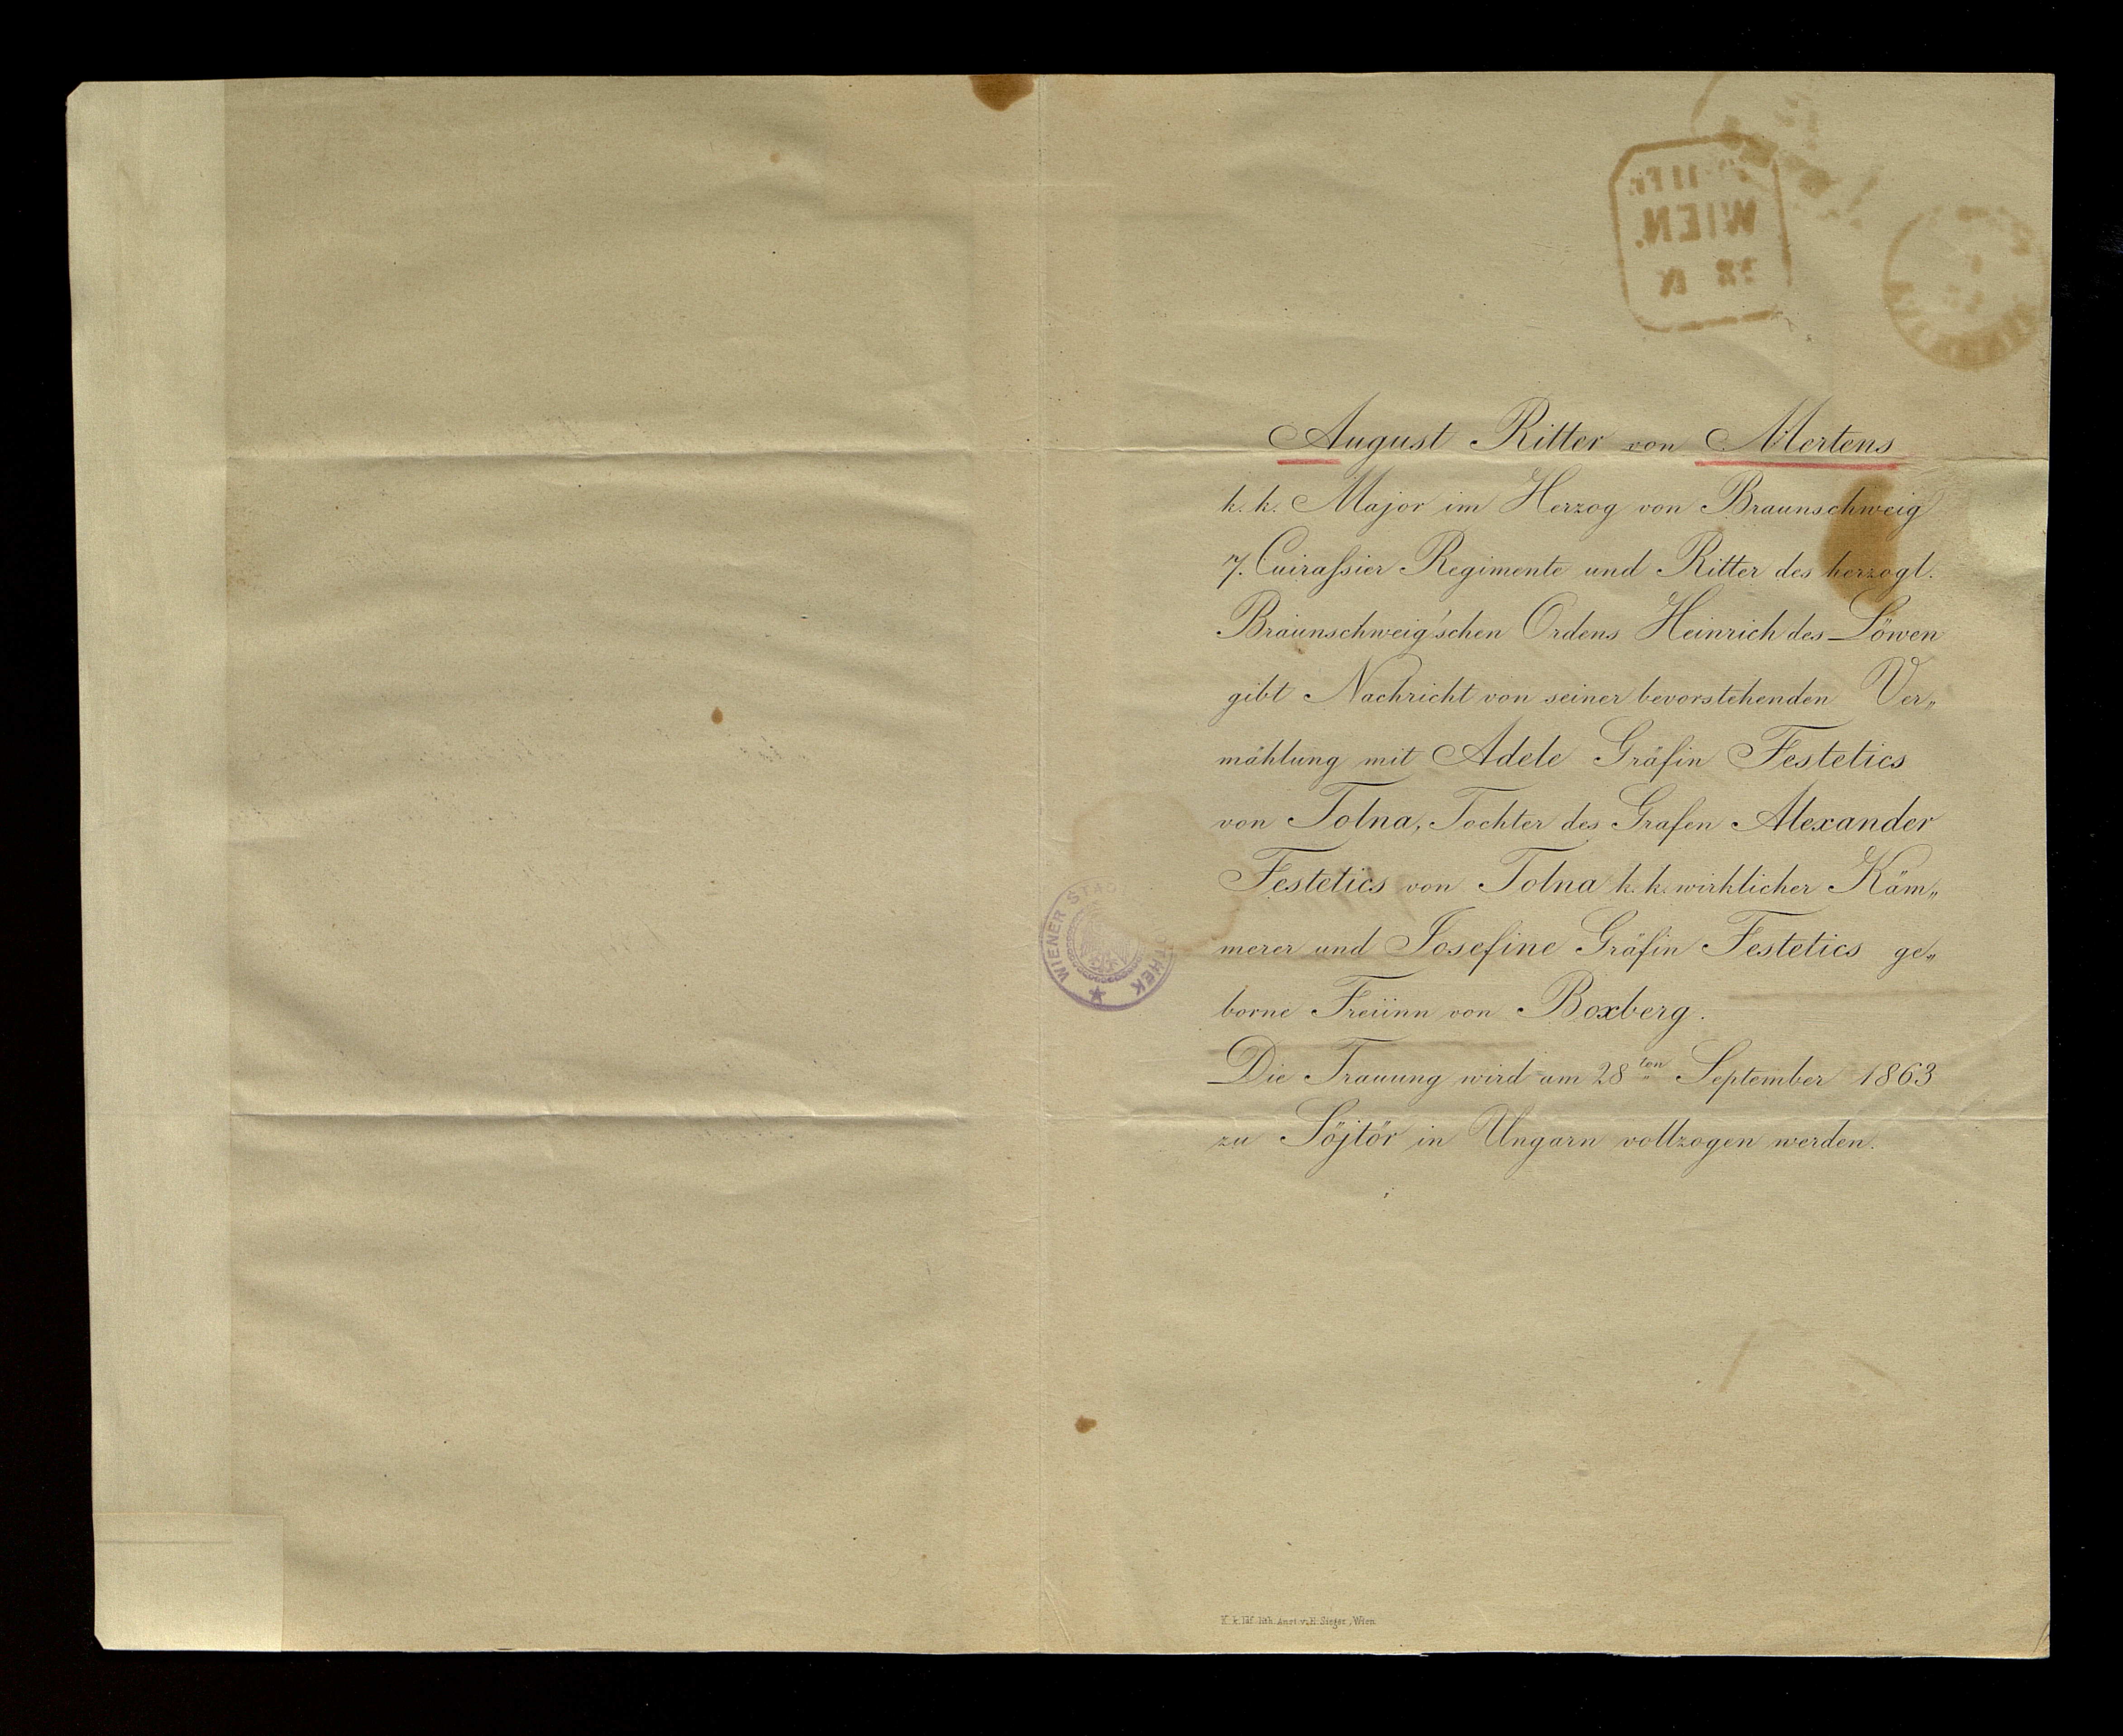 August Ritter von Mertens
k. k. Major im Herzog von Braunschweig
7. Cuirassier Regimente und Ritter des herzogl.
Braunschweig'schen Ordens Heinrich des Löwen
gibt Nachricht von seiner bevorstehenden Ver„
mählung mit Adele Gräfin Festetics
von Tolna, Tochter des Grafen Alexander
Festetics von Tolna k. k. wirklicher Käm„
merer und Josefine Gräfin Festetics ge„
borne Freiinn von Boxberg.
Die Trauung wird am 28ten September 1863
zu Söjtör in Ungarn vollzogen werden.
WIEN.
WIENER STADT
K. k. lith. Anst. v. H. Sieger, Wien